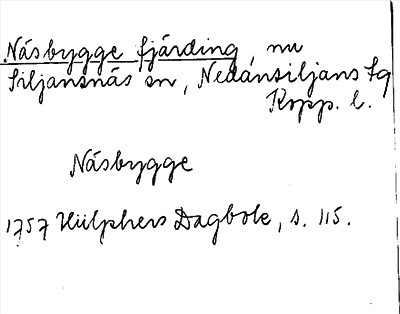 Näsbygge fjärding, nu
Siljansnäs sn, Nedansiljans tg
Kopp. l.
Näsbygge
1757 Hülphers Dagbok, s. 115.